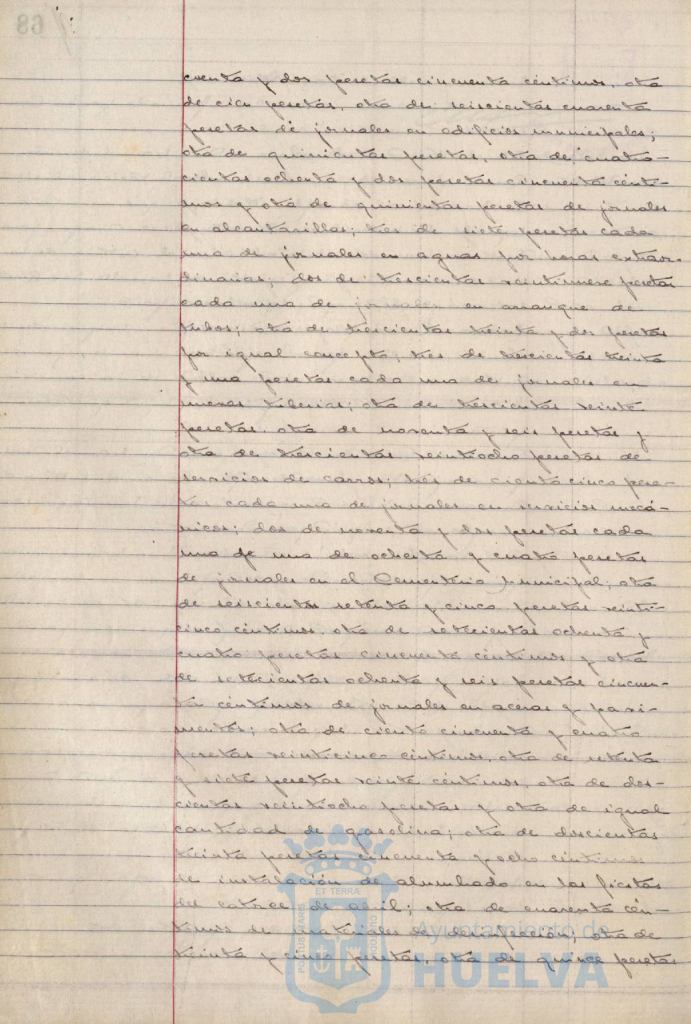 68
cuenta y dos pesetas cincuenta céntimos, otra
de cien pesetas, otra de seiscientas cuarenta
pesetas de jornales en edificios municipales;
otra de quinientas pesetas, otra de cuatro-
cientas ochenta y dos pesetas cincuenta cénti-
mos y otra de quinientas pesetas de jornales
en alcantarillas; tres de siete pesetas cada
una de jornales en aguas por horas extraor-
dinarias; dos de trescientas veintinueve pesetas
cada una de jornales en arranque de
tubos; otra de trescientas treinta y dos pesetas
por igual concepto; tres de trescientas treinta
y una pesetas cada una de jornales en
nuevas tuberias; otra de trescientas veinte
pesetas, otra de noventa y seis pesetas y
otra de trescientas veintiocho pesetas de
servicios de carros; tres de ciento cinco pese-
tas cada una de jornales en servicios mecá-
nicos; dos de noventa y dos pesetas cada
una y una de ochenta y cuatro pesetas
de jornales en el Cementerio Municipal; otra
de seiscientas setenta y cinco pesetas veinti-
cinco céntimos, otra de setecientas ochenta y
cuatro pesetas cincuenta céntimos y otra
de setecientas ochenta y seis pesetas cincuen-
ta céntimos de jornales en aceras y pavi-
mentos; otra de ciento cincuenta y cuatro
pesetas veinticinco céntimos, otra de setenta
y siete pesetas veinte céntimos, otra de dos-
cientas veintiocho pesetas y otra de igual
cantidad de gasolina; otra de doscientas
treinta pesetas cincuenta y ocho céntimos
de instalación de alumbrado en las fiestas
del catorce de abril; otra de cuarenta cén-
timos de materiales de desinfección; otra de
treinta y cinco pesetas, otra de quince pesetas
PORTUS MARIS
ET TERRA
CUSTODIA
Ayuntamiento de
HUELVA